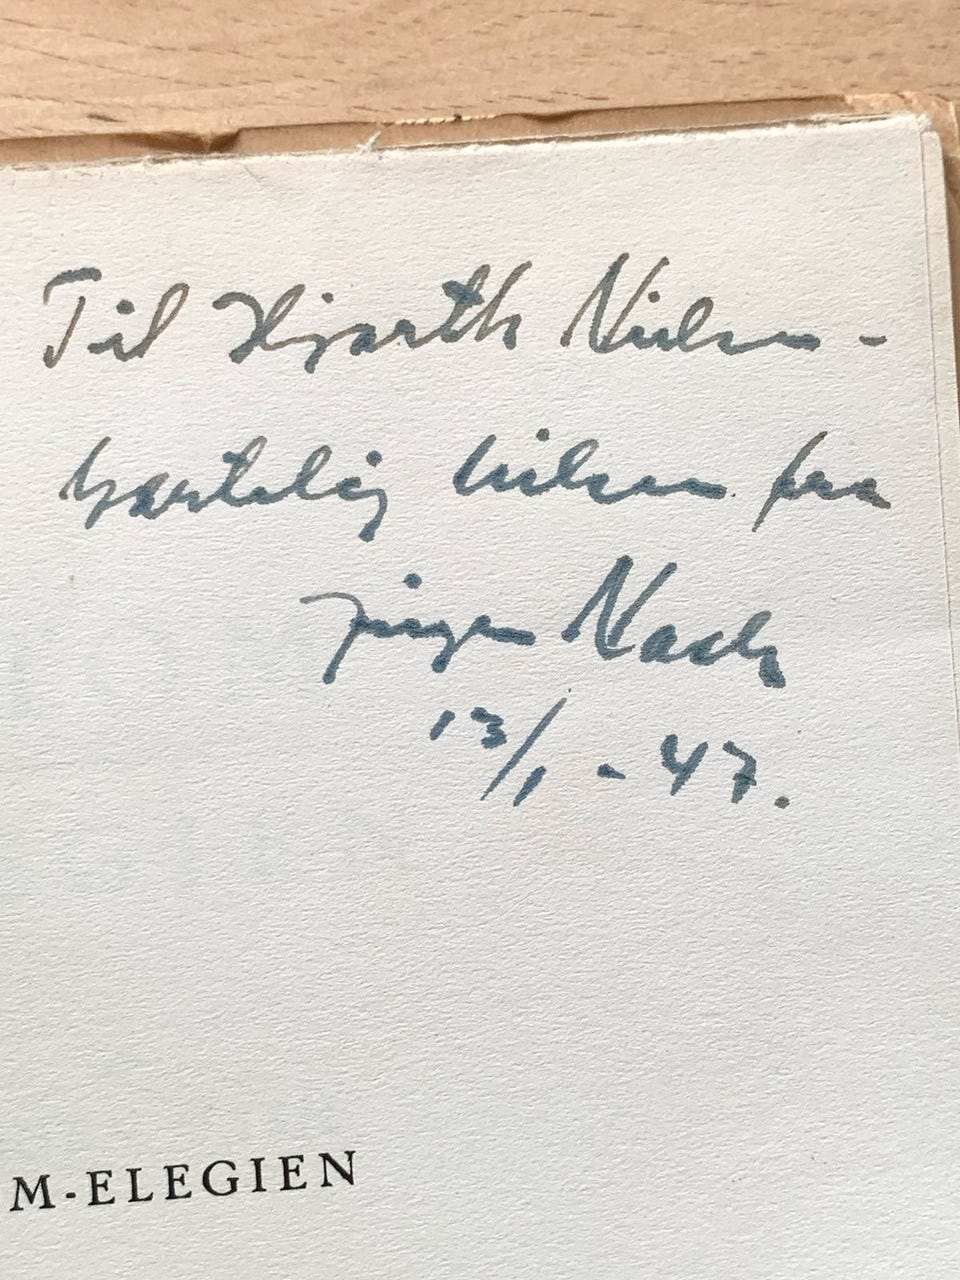 Til Hjorth Nielsen -
hjertelig hilsen fra
Jørgen Nash
13/1 - 47.
M-ELEGIEN